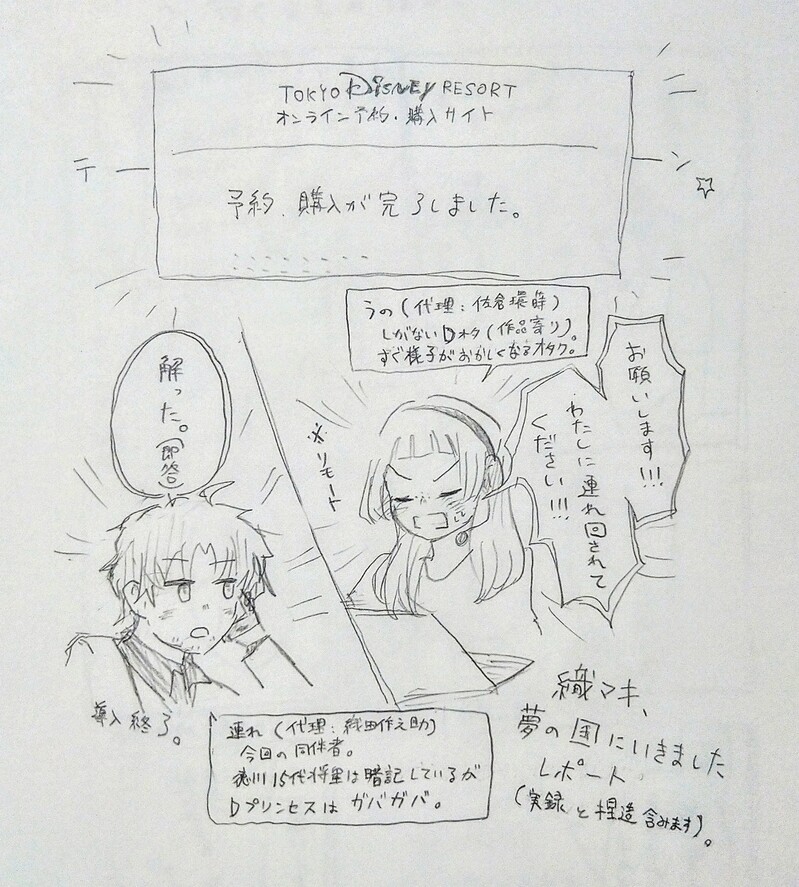 TOKYO Disney RESORT
オンライン予約・購入サイト
テーン☆
予約、購入が完了しました。
うの(代理:佐倉環蒔)
しがないDオタ(作品寄り)。
すぐ様子がおかしくなるオタク。
お願いします!!!
わたしに連れ回されて
ください!!!
※リモート
解った。
(即答)
導入終了。
連れ(代理:織田作之助)
今回の同伴者。
徳川15代将軍は暗記しているが
Dプリンセスはガバガバ。
織マキ、
夢の国にいきました
レポート
(実録と捏造含みます)。